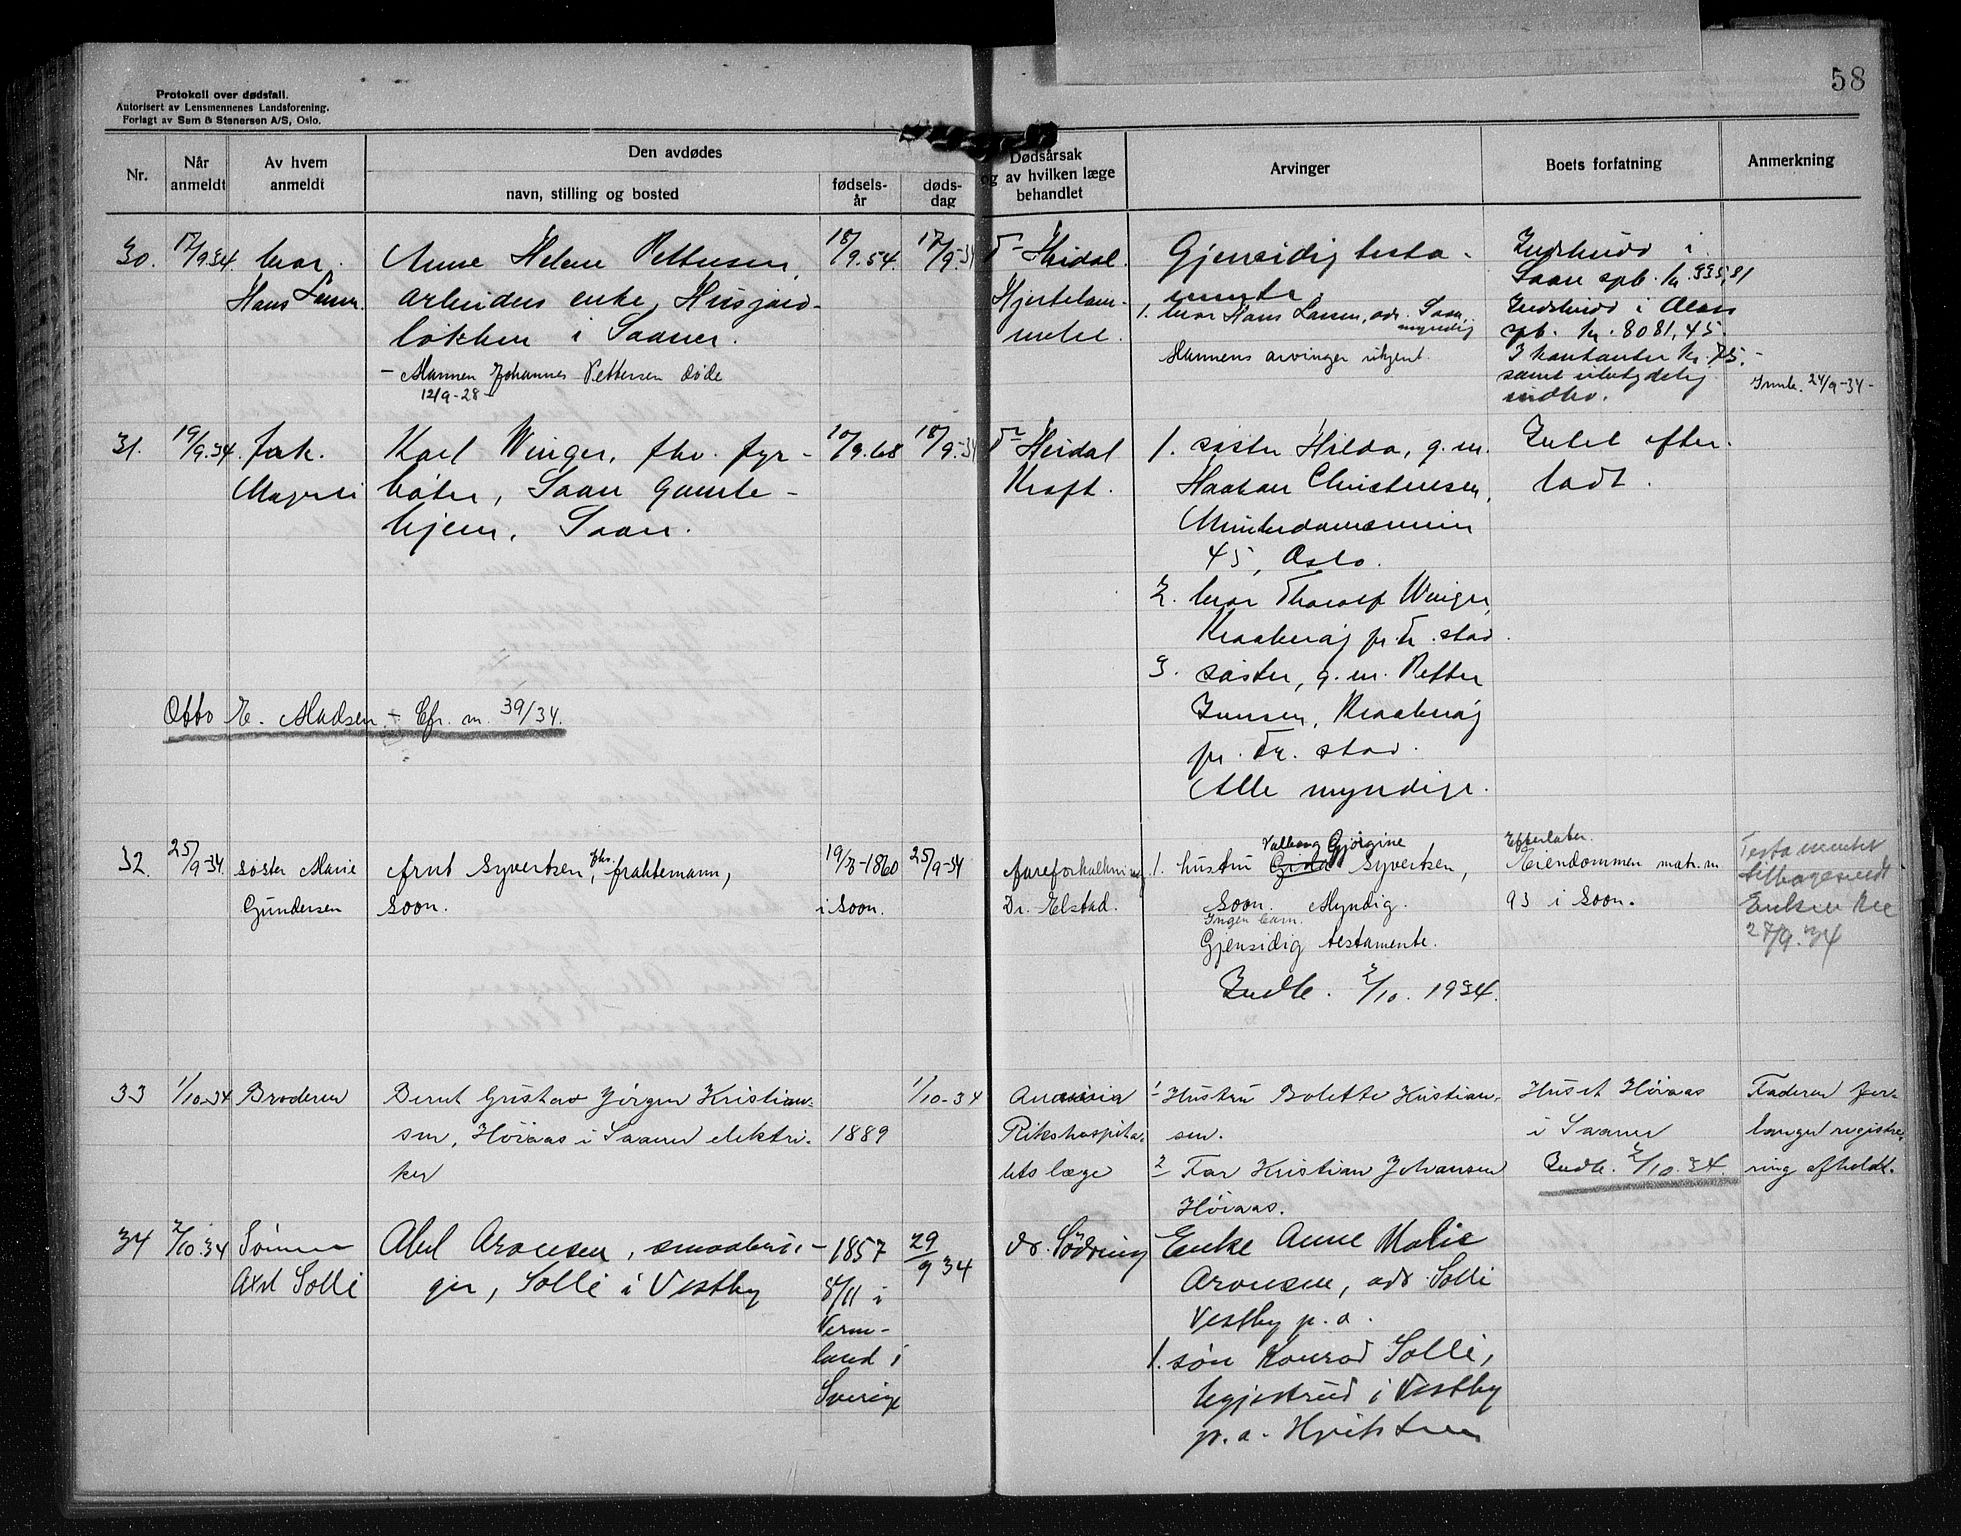 58
Protokoll over dødsfall.
Autorisert av Lensmennenes Landsforening.
Forlagt av Sem & Stenersen A/S, Oslo.
Nr.
Når anmeldt
Av hvem anmeldt
Den avdødes
navn, stilling og bosted
fødselsår
dødsdag
Dødsårsak og av hvilken læge behandlet
Arvinger
Boets forfatning
Anmerkning
30.
17/9 34.
bror.
Hans Larsen.
Anne Helene Pettersen,
arbeiders enke, Husjord-
løkken i Saaner.
- Mannen Johannes Pettersen døde
12/9-28
18/9.54.
17/9-34
Dr Heidal.
Hjertelam-
melse.
Gjensidig testa-
mente.
1. bror Hans Larsen, adr. Soon,
myndig
Mannens arvinger ukjent.
Indskudd i
Saan spb. kr. 335,81
Indskudd i
spb. kr. 8081,45
I kontanter kr. 75,-
samt ubetydelig
indbo.
Innb. 24/9-34-
31.
19/9.34.
fork.
Karl Winger, fhv. fyr-
bøter, Soon gamle-
hjem, Soon.
10/9.68
18/9-34
Dr Heidal
Kræft.
1. søster Hilda, g.m.
Haakon Christensen,
45, Oslo.
2. bror Thoralf Winger,
Kraakerøy pr. Fr. stad.
3. søster, g.m. Petter
Jensen, Kraakerøy
pr. Fr. stad.
Alle myndige.
Intet efter-
ladt.
Otto E. Madsen - Cfr. nr. 39/34.
32.
25/9-34.
søster Marie
Gundersen
Arnt Syvertsen, fhv. fraktemann,
Soon.
19/8-1860
i Soon.
25/9-34
Aareforkalkning
Dr. Elstad.
Valborg Gjørgine
1. hustru Syvertsen,
Soon. Myndig.
Ingen barn.
Gjensidig testamente.
Indb. 2/10. 1934.
Efterlater
Eiendommen matr. nr.
93 i Soon.
Testamentet
tilbagesendt
27/9.34
33
1/10-34
Broderen
Bernt Gustav Jørgen Kristian-
sen, Høiaas i Saaner elektri-
ker
1889
1/10-34
Anæmia
Rikshospita-
lets læge
1 Hustru Bolette Kristian-
sen.
2 Far Kristian Johansen
Høiaas.
Huset Høiaas
i Saaner
Indb. 2/10.34.
Faderen for-
langer registre-
ring afholdt.
34
2/10.34
Sønnen
Axel Solli
Abel Aronsen, smaabru-
ger, Solli i Vestby
1857
8/11 i
Verm-
land i
Sverige
29/9 34
dr. Södring
Enke Anne Malie
Aronsen, adr. Solli
Vestby p.a.
1. søn Konrad Solli,
i Vestby
p.a. Hvitsten